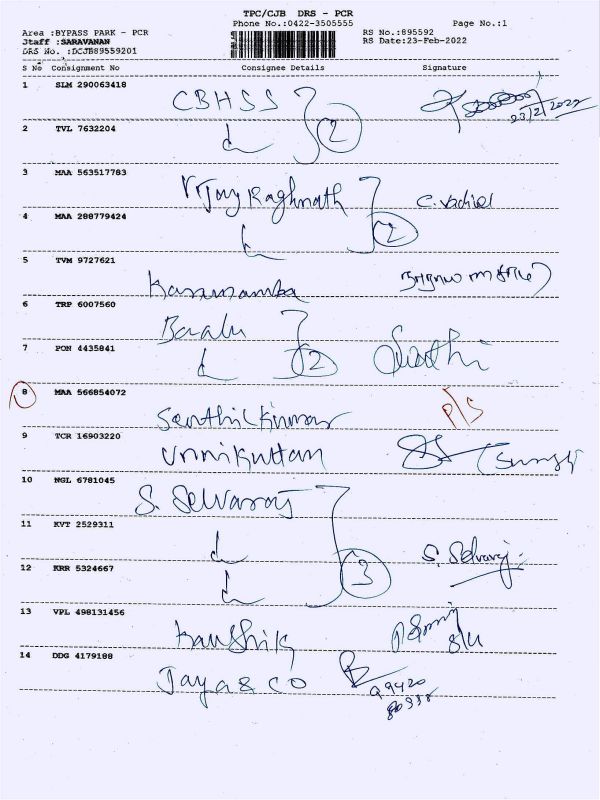 TPC/CJB DRS - PCR
Phone No.:0422-3505555
Page No.:1
Area :BYPASS PARK - PCR
RS No.:895592
Jtaff :SARAVANAN
RS Date:23-Feb-2022
DRS No. :DCJB89559201
S No Consignment No Consignee Details Signature
1 SLM 290063418 CBHSS 2
23/2/2022
2 TVL 7632204
3 MAA 563517783 Vijay Raghnath 2 C. Vadivel
4 MAA 288779424
5 TVM 9727621 Karunamba
6 TRP 6007560 Baalu 2
7 PON 4435841
8 MAA 566854072 Senthil Kumar P/S
9 TCR 16903220 Unnikuttan
10 NGL 6781045 S. Selvaraj 3
11 KVT 2529311 S. Selvaraj
12 KRR 5324667
13 VPL 498131456 Kaushik
14 DDG 4179188 Jaya & CO